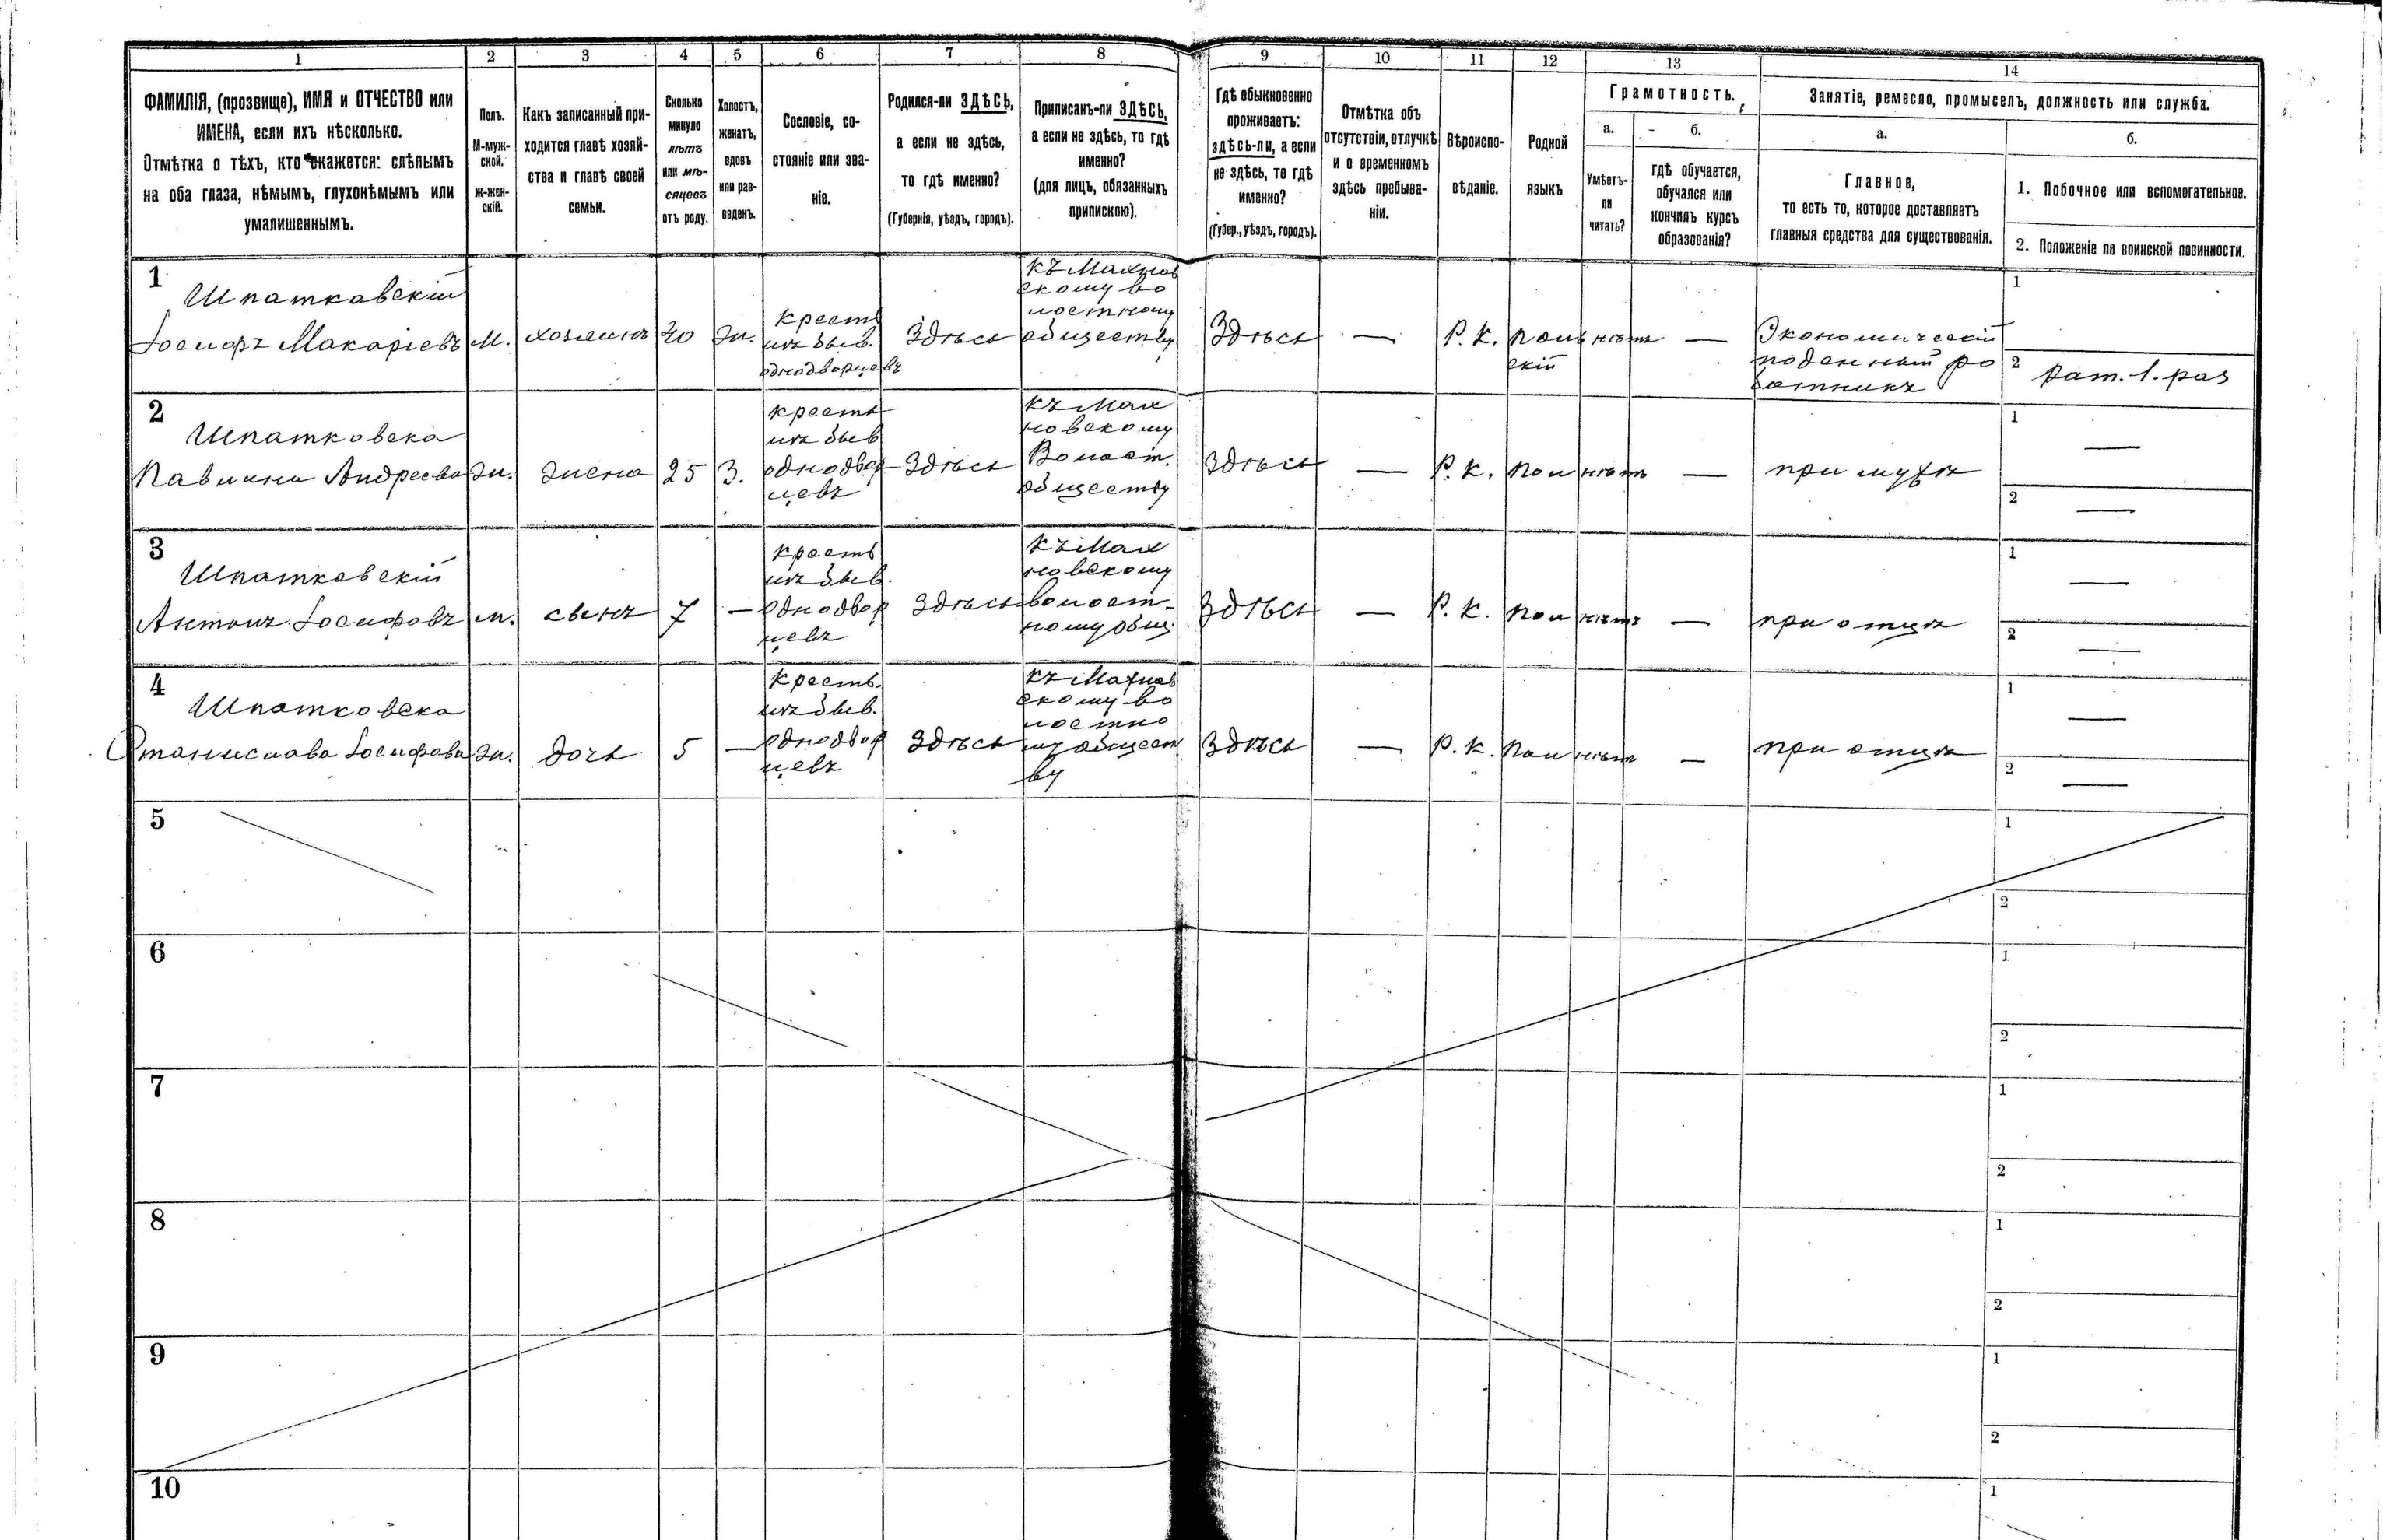 1 2 3 4 5 6 7 8 9 10 11 12 13 14
ФАМИЛІЯ, (прозвище), ИМЯ и ОТЧЕСТВО или
ИМЕНА, если ихъ нѣсколько.
Отмѣтка о тѣхъ, кто окажется: слѣпымъ
на оба глаза, нѣмымъ, глухонѣмымъ или
умалишеннымъ.
Полъ.
М-муж-
ской.
или
ж-жен-
скій.
Какъ записанный при-
ходится главѣ хозяй-
ства и главѣ своей
семьи.
Сколько
минуло
лѣтъ
или мѣ-
сяцевъ
отъ роду.
Холостъ,
женатъ,
вдовъ
или раз-
веденъ.
Сословіе, со-
стояніе или зва-
ніе.
Родился-ли ЗДѢСЬ,
а если не здѣсь,
то гдѣ именно?
(Губернія, уѣздъ, городъ).
Приписанъ-ли ЗДѢСЬ,
а если не здѣсь, то гдѣ
именно?
(для лицъ, обязанныхъ
припискою).
Гдѣ обыкновенно
проживаетъ:
здѣсь-ли, а если
не здѣсь, то гдѣ
именно?
(Губер., уѣздъ, городъ).
Отмѣтка объ
отсутствіи, отлучкѣ
и о временномъ
здѣсь пребыва-
ніи.
Вѣроиспо-
вѣданіе.
Родной
языкъ
Грамотность.
а.
Умѣетъ-
ли
читать?
б.
гдѣ обучается,
обучался или
кончилъ курсъ
образованія?
Занятіе, ремесло, промыселъ, должность или служба.
а.
Главное,
то есть то, которое доставляетъ
главныя средства для существованія.
б.
1. Побочное или вспомогательное.
2. Положеніе по воинской повинности.
1
Шпатковскій
Іосифъ Макаріевъ
м.
хозяинъ
жн.
крест
изъ быв.
однодворцевъ
Здѣсь
къ Махнов
скому во
лостному
обществу
Здѣсь
—
Р. К.
поль
скій
нѣтъ
—
Экономическій
поденный ра
ботникъ
1
2 рат. 1. раз
2
Шпатковска
Павлина Андреева
жн.
жена
25
З.
крестъ
изъ быв
однодвор
цевъ
Здѣсь
къ Мах
новскому
Волост.
обществу
Здѣсь
—
Р. К.
пол
нѣтъ
—
при мужѣ
1 —
2 —
3
Шпатковскій
Антонъ Іосифовъ
м.
сынъ
7
—
крестъ
изъ быв.
однодвор
цевъ
Здѣсь
къ Мах
новскому
волост-
ному общ
Здѣсь
—
Р. К.
пол
нѣтъ
—
при отцѣ
1 —
2 —
4
Шпатковска
Станислава Іосифова
жн.
дочь
5
—
крестъ.
изъ быв.
однодвор
цевъ
Здѣсь
къ Махнов
скому во
лостно
му общест
ву
Здѣсь
—
Р. К.
пол
нѣтъ
—
при отцѣ
1 —
2 —
5
1
2
6
1
2
7
1
2
8
1
2
9
1
2
10
1